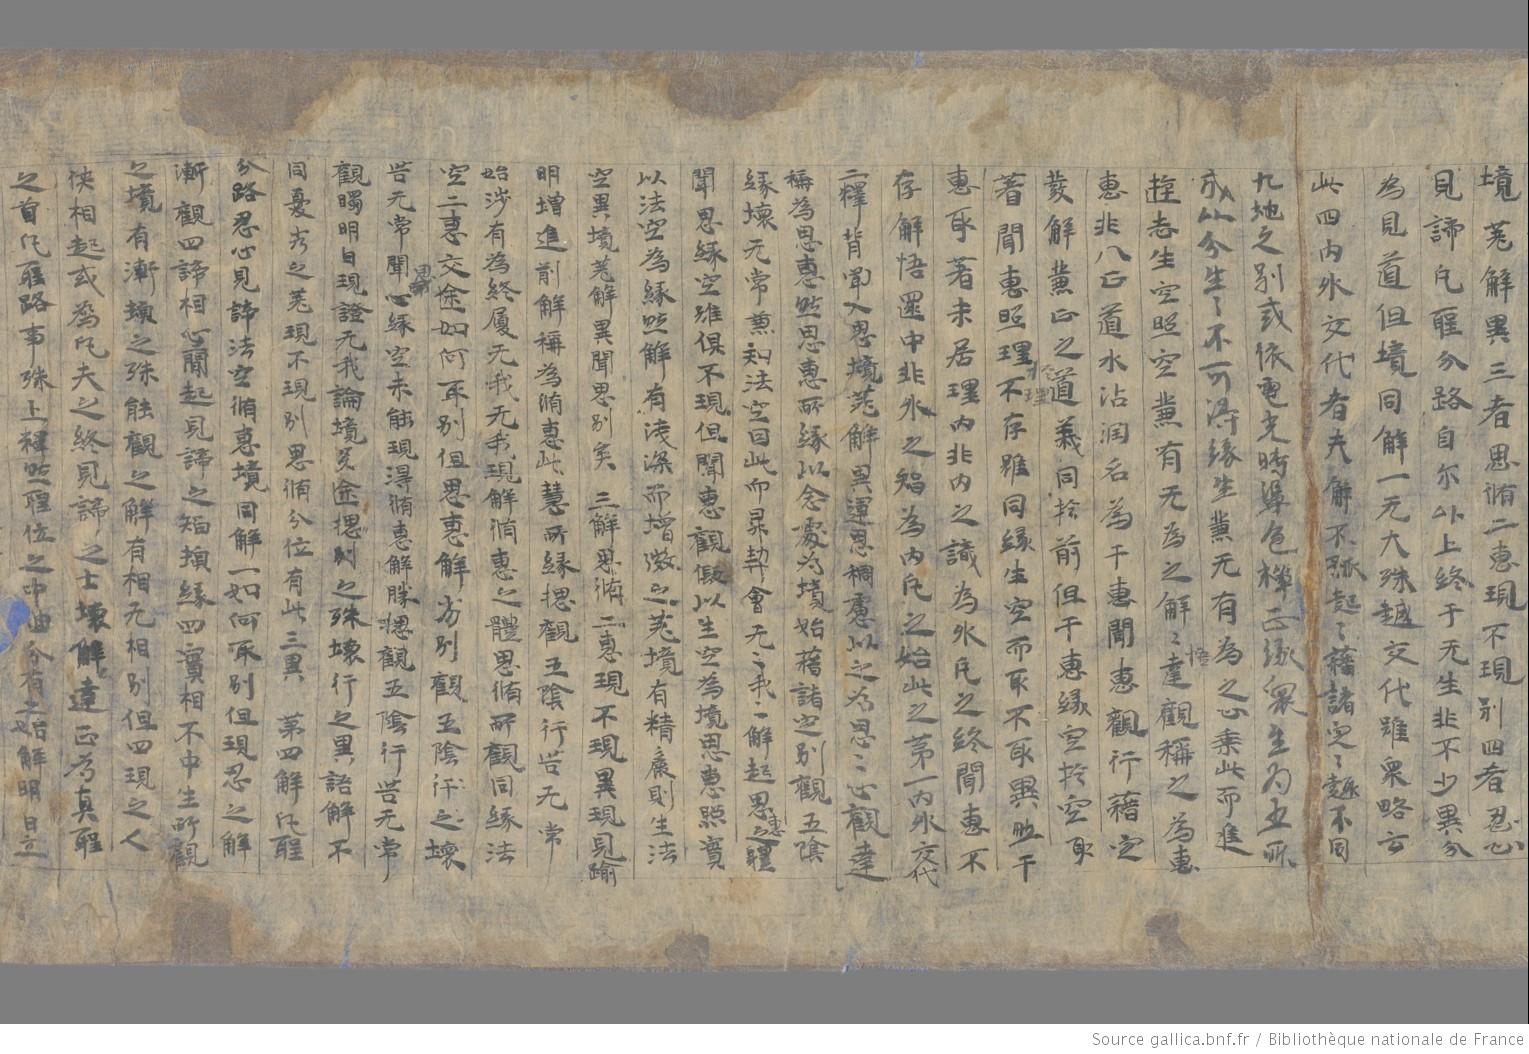 境菟解異三者思脩二惠現不現別四者忍心
見諦凡聖分路自尒以上終于无生非不少異分
為見道但境同解一无大殊越交代雖衆略言
此四内外交代者夫解不孤起々藉諸定々趣不同
九地之別或依電光時過色禪正緣衆生为五所
成以分生々不可得緣生兼无有為之心乘此而進
逕志生空照空兼有无為之解々達觀稱之為惠
惠非八正道水沾润名為干惠聞惠觀行藉定
發解兼正之道義同於前但干惠緣空於空取
著聞惠照理不存雖同緣生空而取不取異也干
惠取著未居理内非内之識為外凡之終聞惠不
存解悟還中非外之智為内凡之始此之第一内外交代
二釋背聞入思境菟解異運思稠慮以之为思々心觀達
稱為思惠然思惠所緣以念處为境始藉諸定別觀五陰
緣壞无常兼知法空因此而尋執會无之我一解起思惠之體
聞思緣空雖俱不現但聞惠觀假以生空為境思惠照實
以法空為緣然解有浅深而增微之菟境有精麁則生法
空異境菟解異聞思別矣 三解思脩二惠現不現異現見踰
明增進前解稱為脩惠此慧所緣揔觀五陰行苦无常
始涉有為終履无我无我現解脩惠之體思脩所觀同緣法
空二惠交途如何取別但思惠解劣別觀五陰行之壞
苦无常聞思心緣空未能現得脩惠解勝揔觀五陰行苦无常
觀矚明白現證无我論境受途揔別之殊壞行之異語解不
同憂劣之菟現不現別思脩分位有此三異 第四解凡聖
分路忍心見諦法空脩惠境同解一如何取別但現忍之解
漸觀四諦相心聞起見諦之智頓緣四實相不中生所觀
之境有漸頓之殊能觀之解有相无相別但四現之人
俠相起或為凡夫之終見諦之士壞解達正为真聖
之首凡聖路事殊上釋然聖位之中曲分有五始解明日立